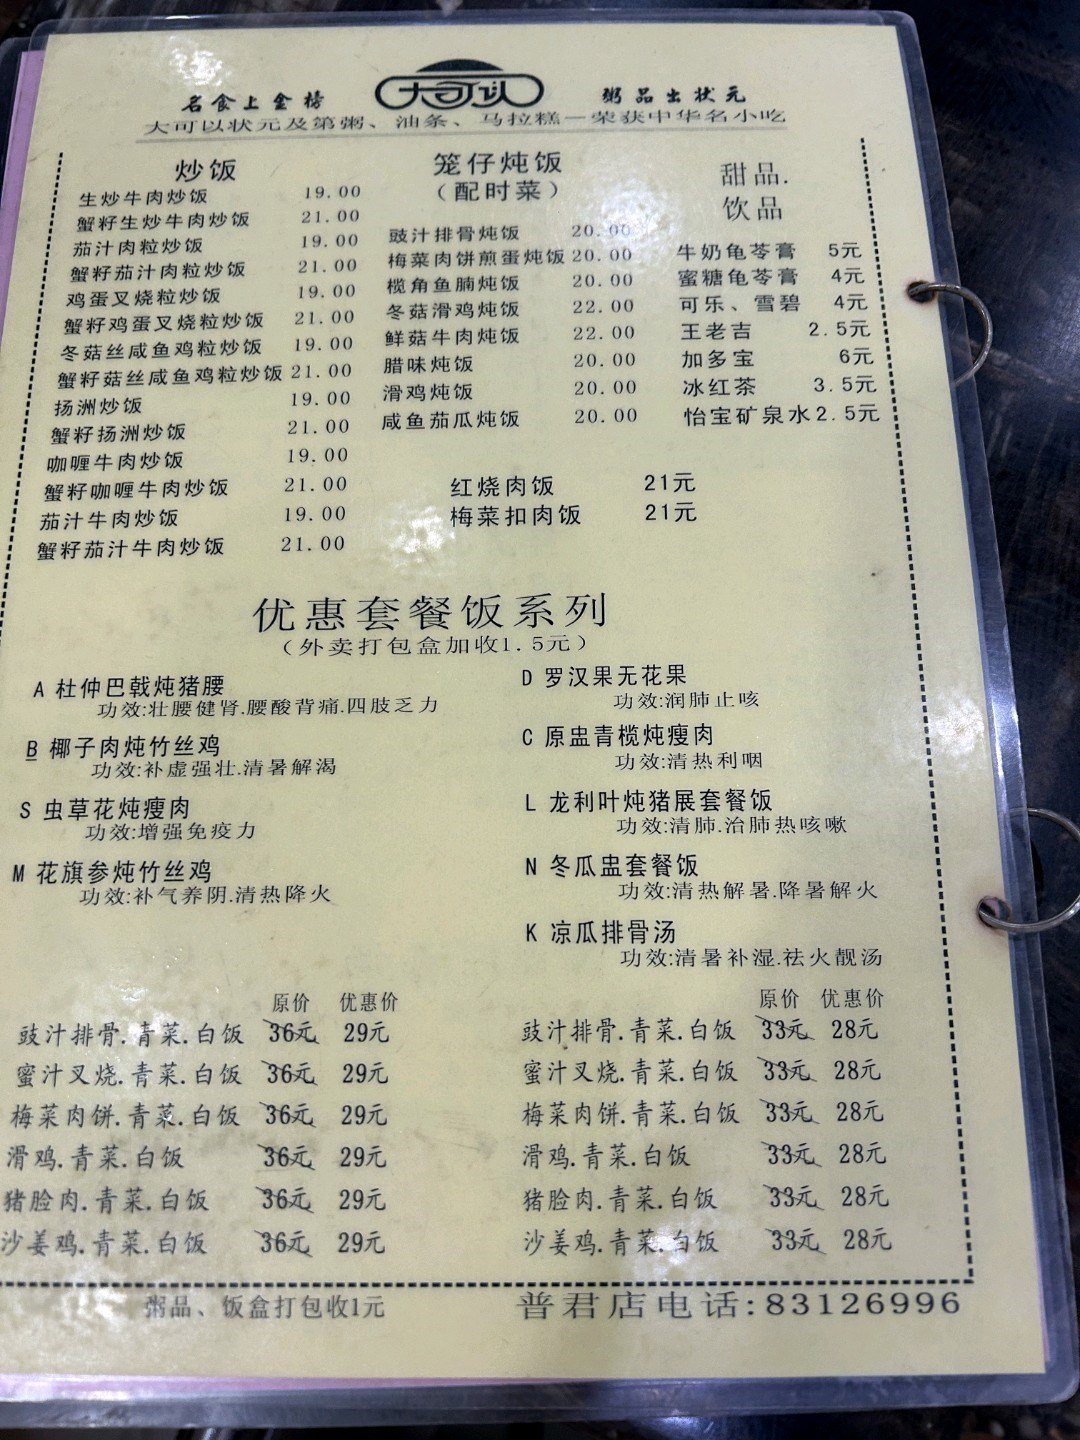 名食上金榜 大可以 粥品出状元
大可以状元及第粥、油条、马拉糕—荣获中华名小吃
炒饭
生炒牛肉炒饭 19.00
蟹籽生炒牛肉炒饭 21.00
茄汁肉粒炒饭 19.00
蟹籽茄汁肉粒炒饭 21.00
鸡蛋叉烧粒炒饭 19.00
蟹籽鸡蛋叉烧粒炒饭 21.00
冬菇丝咸鱼鸡粒炒饭 19.00
蟹籽菇丝咸鱼鸡粒炒饭 21.00
扬洲炒饭 19.00
蟹籽扬洲炒饭 21.00
咖喱牛肉炒饭 19.00
蟹籽咖喱牛肉炒饭 21.00
茄汁牛肉炒饭 19.00
蟹籽茄汁牛肉炒饭 21.00
笼仔炖饭
（配时菜）
豉汁排骨炖饭 20.00
梅菜肉饼煎蛋炖饭 20.00
榄角鱼腩炖饭 20.00
冬菇滑鸡炖饭 22.00
鲜菇牛肉炖饭 22.00
腊味炖饭 20.00
滑鸡炖饭 20.00
咸鱼茄瓜炖饭 20.00
红烧肉饭 21元
梅菜扣肉饭 21元
甜品.
饮品
牛奶龟苓膏 5元
蜜糖龟苓膏 4元
可乐、雪碧 4元
王老吉 2.5元
加多宝 6元
冰红茶 3.5元
怡宝矿泉水 2.5元
优惠套餐饭系列
（外卖打包盒加收1.5元）
A 杜仲巴戟炖猪腰
功效:壮腰健肾.腰酸背痛.四肢乏力
B 椰子肉炖竹丝鸡
功效:补虚强壮.清暑解渴
S 虫草花炖瘦肉
功效:增强免疫力
M 花旗参炖竹丝鸡
功效:补气养阴.清热降火
原价 优惠价
豉汁排骨.青菜.白饭 36元 29元
蜜汁叉烧.青菜.白饭 36元 29元
梅菜肉饼.青菜.白饭 36元 29元
滑鸡.青菜.白饭 36元 29元
猪脸肉.青菜.白饭 36元 29元
沙姜鸡.青菜.白饭 36元 29元
D 罗汉果无花果
功效:润肺止咳
C 原盅青榄炖瘦肉
功效:清热利咽
L 龙利叶炖猪展套餐饭
功效:清肺.治肺热咳嗽
N 冬瓜盅套餐饭
功效:清热解暑.降暑解火
K 凉瓜排骨汤
功效:清暑补湿.祛火靓汤
原价 优惠价
豉汁排骨.青菜.白饭 33元 28元
蜜汁叉烧.青菜.白饭 33元 28元
梅菜肉饼.青菜.白饭 33元 28元
滑鸡.青菜.白饭 33元 28元
猪脸肉.青菜.白饭 33元 28元
沙姜鸡.青菜.白饭 33元 28元
粥品、饭盒打包收1元
普君店电话:83126996